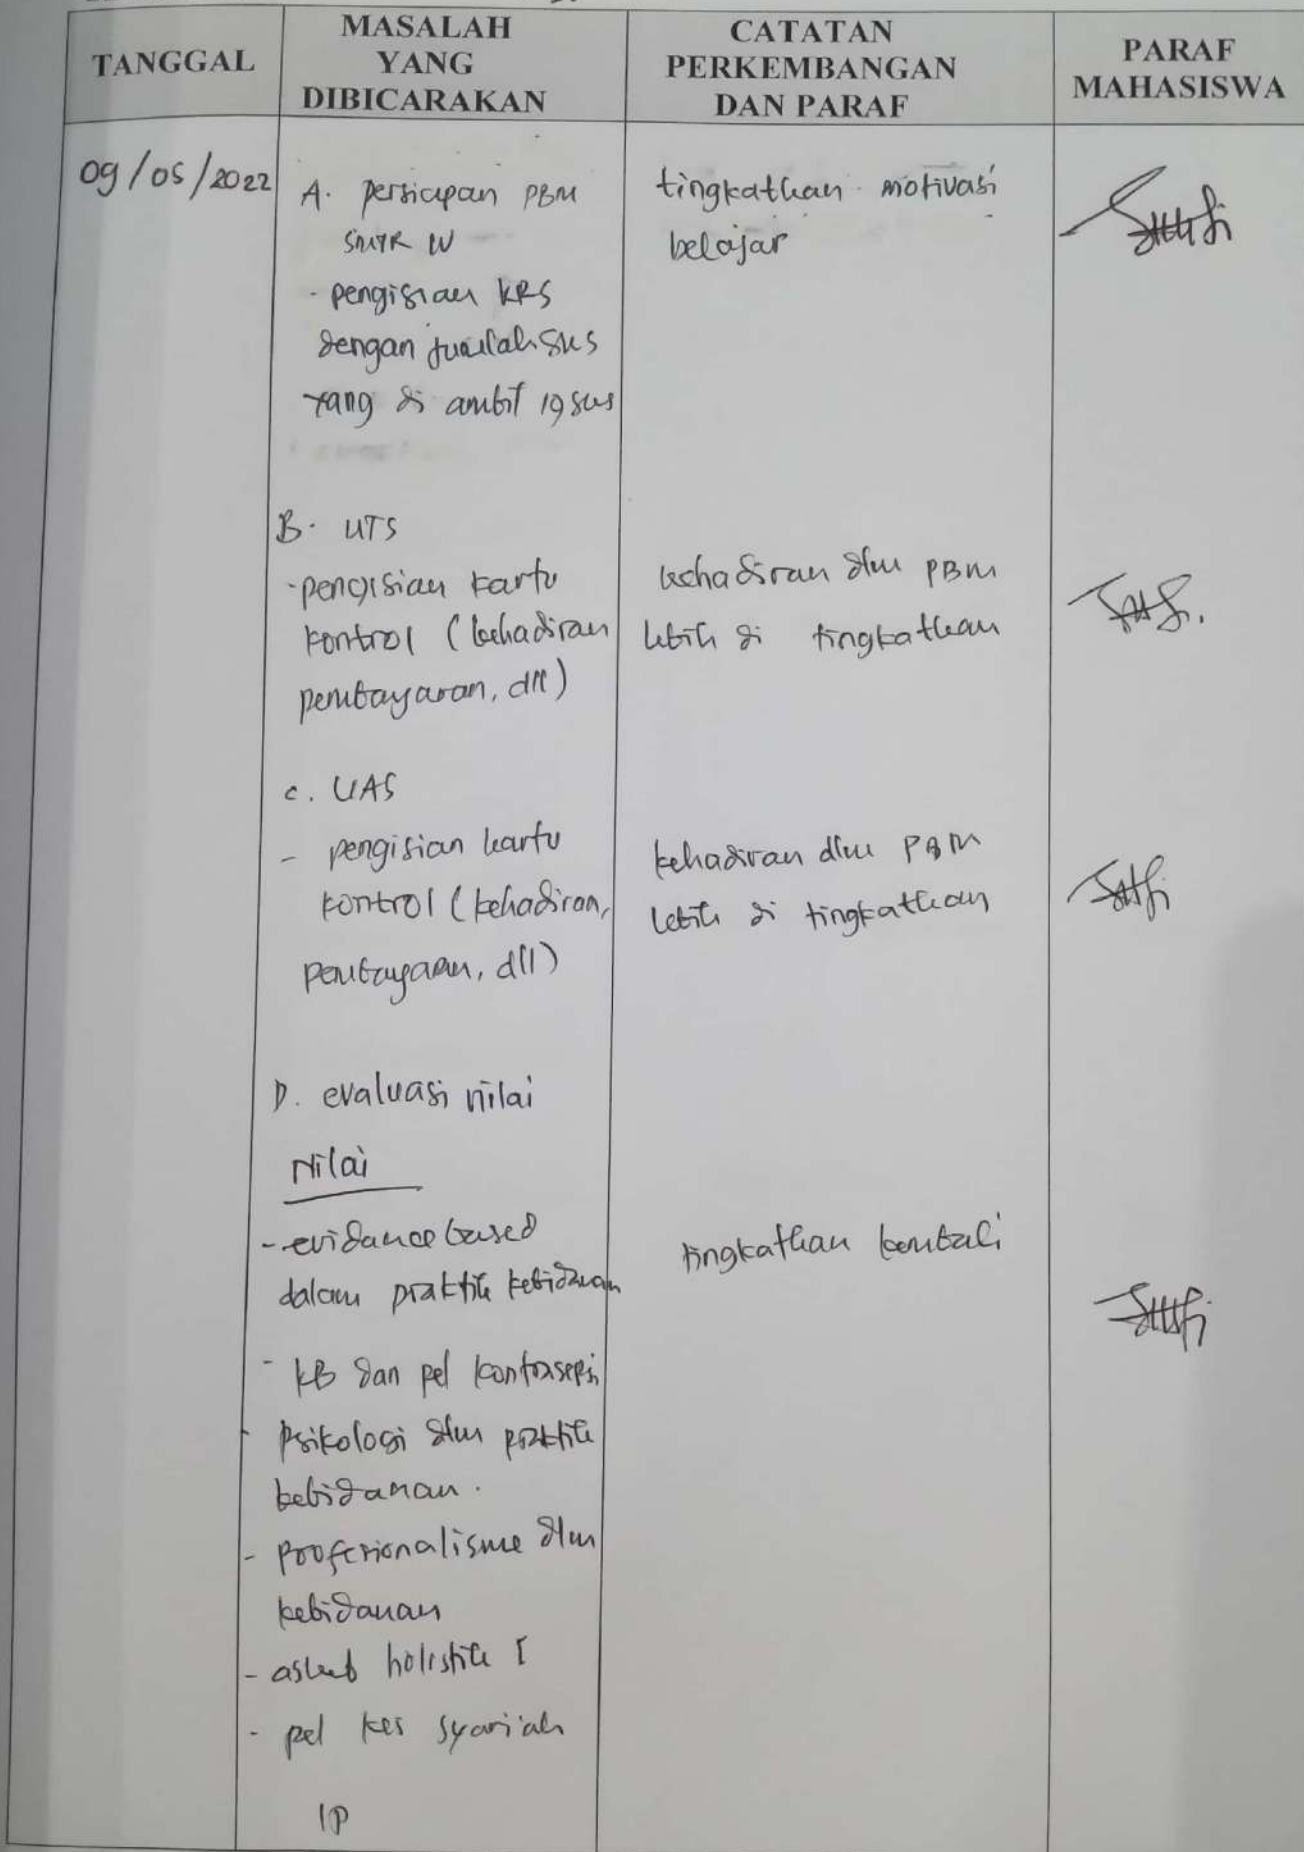 TANGGAL
MASALAH
YANG
DIBICARAKAN
CATATAN
PERKEMBANGAN
DAN PARAF
PARAF
MAHASISWA
09/05/2022
A. persiapan PBM
SMTR IV
- pengisian KRS
dengan jumlah SKS
yang di ambil 19 sks
tingkatkan motivasi
belajar
B. UTS
- pengisian kartu
kontrol (kehadiran
pembayaran, dll)
kehadiran dlm PBM
lebih di tingkatkan
C. UAS
- pengisian kartu
kontrol (kehadiran,
pembayaran, dll)
kehadiran dlm PBM
lebih di tingkatkan
D. evaluasi nilai
Nilai
- evidance based
dalam praktik kebidanan
- KB dan pel kontrasepsi
- Psikologi dlm praktik
kebidanan.
- profesionalisme dlm
kebidanan
- askeb holistik I
- pel kes syari'ah
IP
tingkatkan kembali